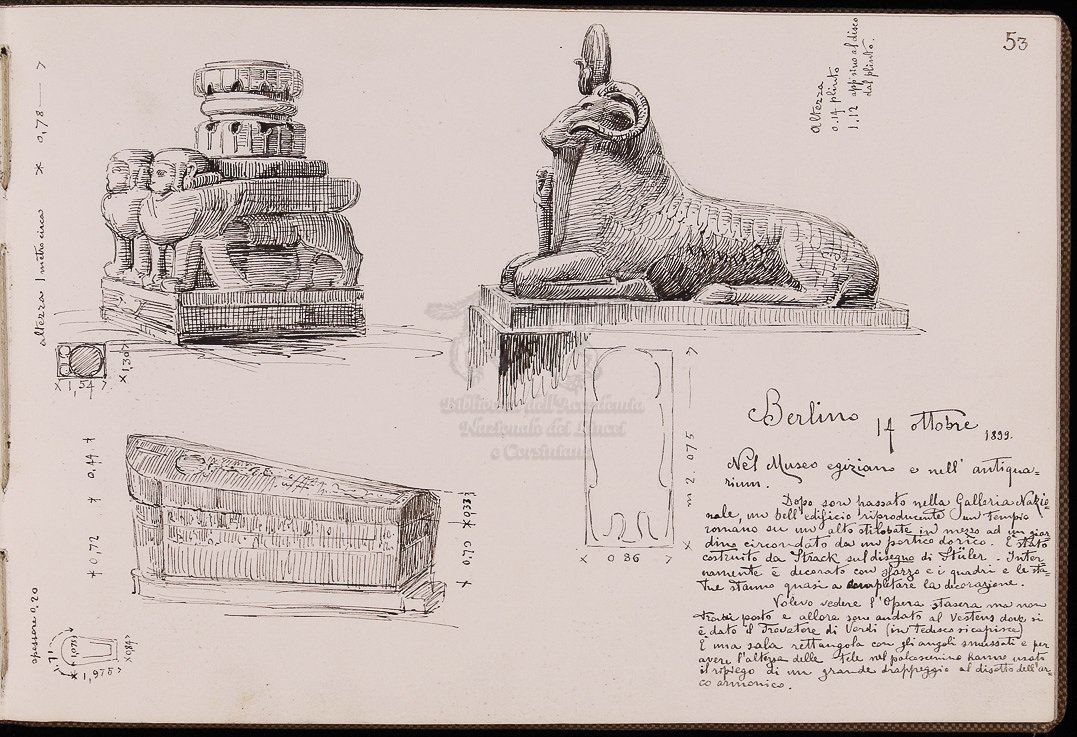 53
Altezza
0.14 plinto
1.12 appsino al disco
dal plinto.
altezza 1 metro circa × 0,78
× 1,30 >
× 1,54 >
Berlino 14 ottobre 1899.
Nel Museo egiziano e nell' antiqua=
rium.
Dopo son passato nella Galleria Nazio=
nale, un bell'edificio riproducente un tempio
romano su un alto stilobate in mezzo ad un giar=
dino circondato da un portico dorico. È stato
costruito da Strack sul disegno di Stüler. Inter=
namente è decorato con sforzo e i quadri e le sta=
tue stanno quasi a completare la decorazione.
Volevo vedere l'Opera stasera ma non
trovai posto e allora son andato al Vestens dove si
è dato il Trovatore di Verdi (in Tedesco si capisce)
È una sala rettangola con gli angoli smussati e per
avere l'altezza delle tele nel palcoscenico hanno usato
il ripiego di un grande drappeggio al disotto dell'ar=
co armonico.
m 2.075
× 0 86 >
0,72 0,44
0,33 × 0,70
spessore 0,20
× 1,975 >
Biblioteca dell'Accademia
Nazionale dei Lincei
e Corsiniana